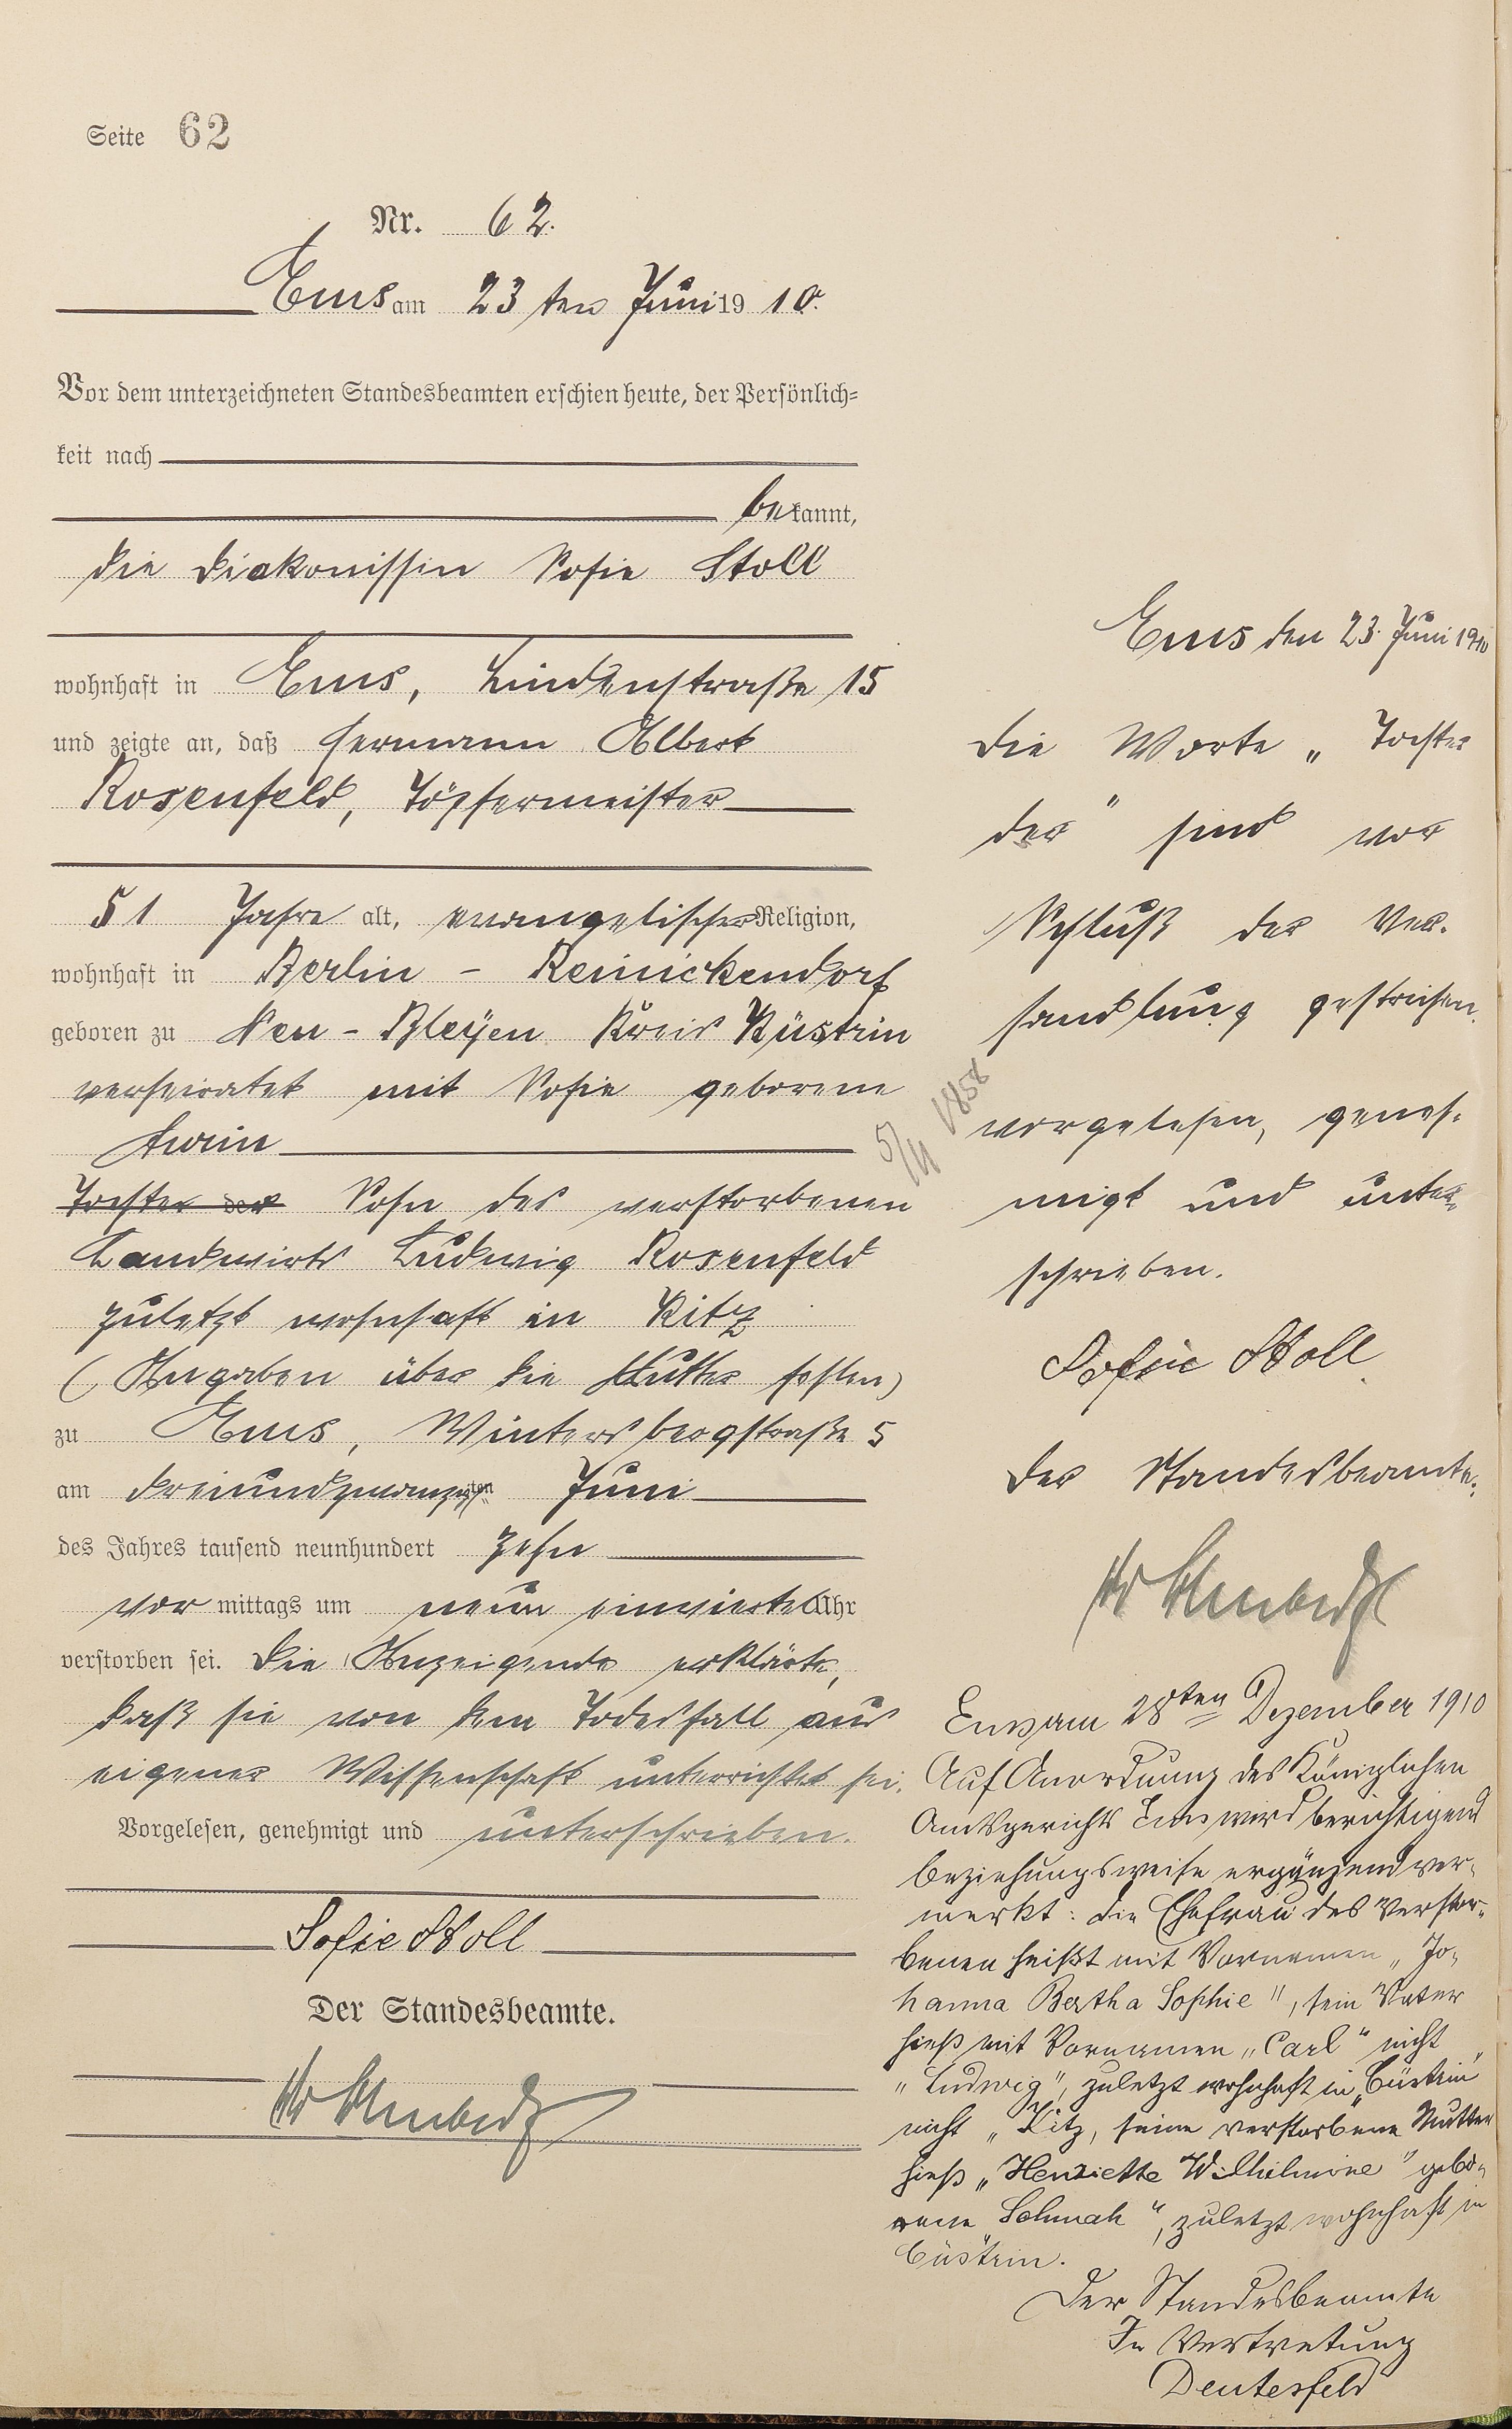 Seite 62
Nr. 62.
Ems am 23 ten Juni 19 10.
Vor dem unterzeichneten Standesbeamten erschien heute, der Persönlich=
keit nach
bekannt,
die Diakonissin Sofie Stoll
wohnhaft in Ems, Lindenstraße 15
und zeigte an, daß Hermann Albert
Rosenfeld, Töpfermeister
51 Jahre alt, evangelischer Religion,
wohnhaft in Berlin - Reinickendorf
geboren zu Neu - Bleyen Kreis Küstrin
verheiratet mit Sofie geborene
Tochter der Sohn des verstorbenen
Landwirts Ludwig Rosenfeld
zuletzt wohnhaft in Kitz
(Angaben über die Mutter fehlen)
zu Ems, Wintersbergstraße 5
am dreiundzwanzigsten Juni
des Jahres tausend neunhundert zehn
vor mittags um neun einviertel Uhr
verstorben sei. Die Anzeigende erklärte,
daß sie von dem Todesfall aus
eigener Wissenschaft unterrichtet sei.
Vorgelesen, genehmigt und unterschrieben.
Sofie Stoll
Der Standesbeamte.
Ems den 23. Juni 1910
Die Worte „Tochter
der" sind vor
Schluß der Ver-
handlung gestrichen.
5/11 1858
vorgelesen, geneh-
migt und unter-
schrieben.
Sofie Stoll
Der Standesbeamte.
Ems am 28ten Dezember 1910
Auf Anordnung des Königlichen
Amtsgerichts Ems wird berichtigend
beziehungsweise ergänzend ver-
merkt: die Ehefrau des Verstor-
benen heißt mit Vornamen „Jo-
hanna Bertha Sophie", sein Vater
hieß mit Vornamen „Carl" nicht
„Ludwig", zuletzt wohnhaft in „Cüstrin"
nicht „Kitz, seine verstorbene Mutter
hieß „Henriette Wilhelmine" gebo-
rene , zuletzt wohnhaft in
Cüstrin.
Der Standesbeamte
In Vertretung
Deutesfeld